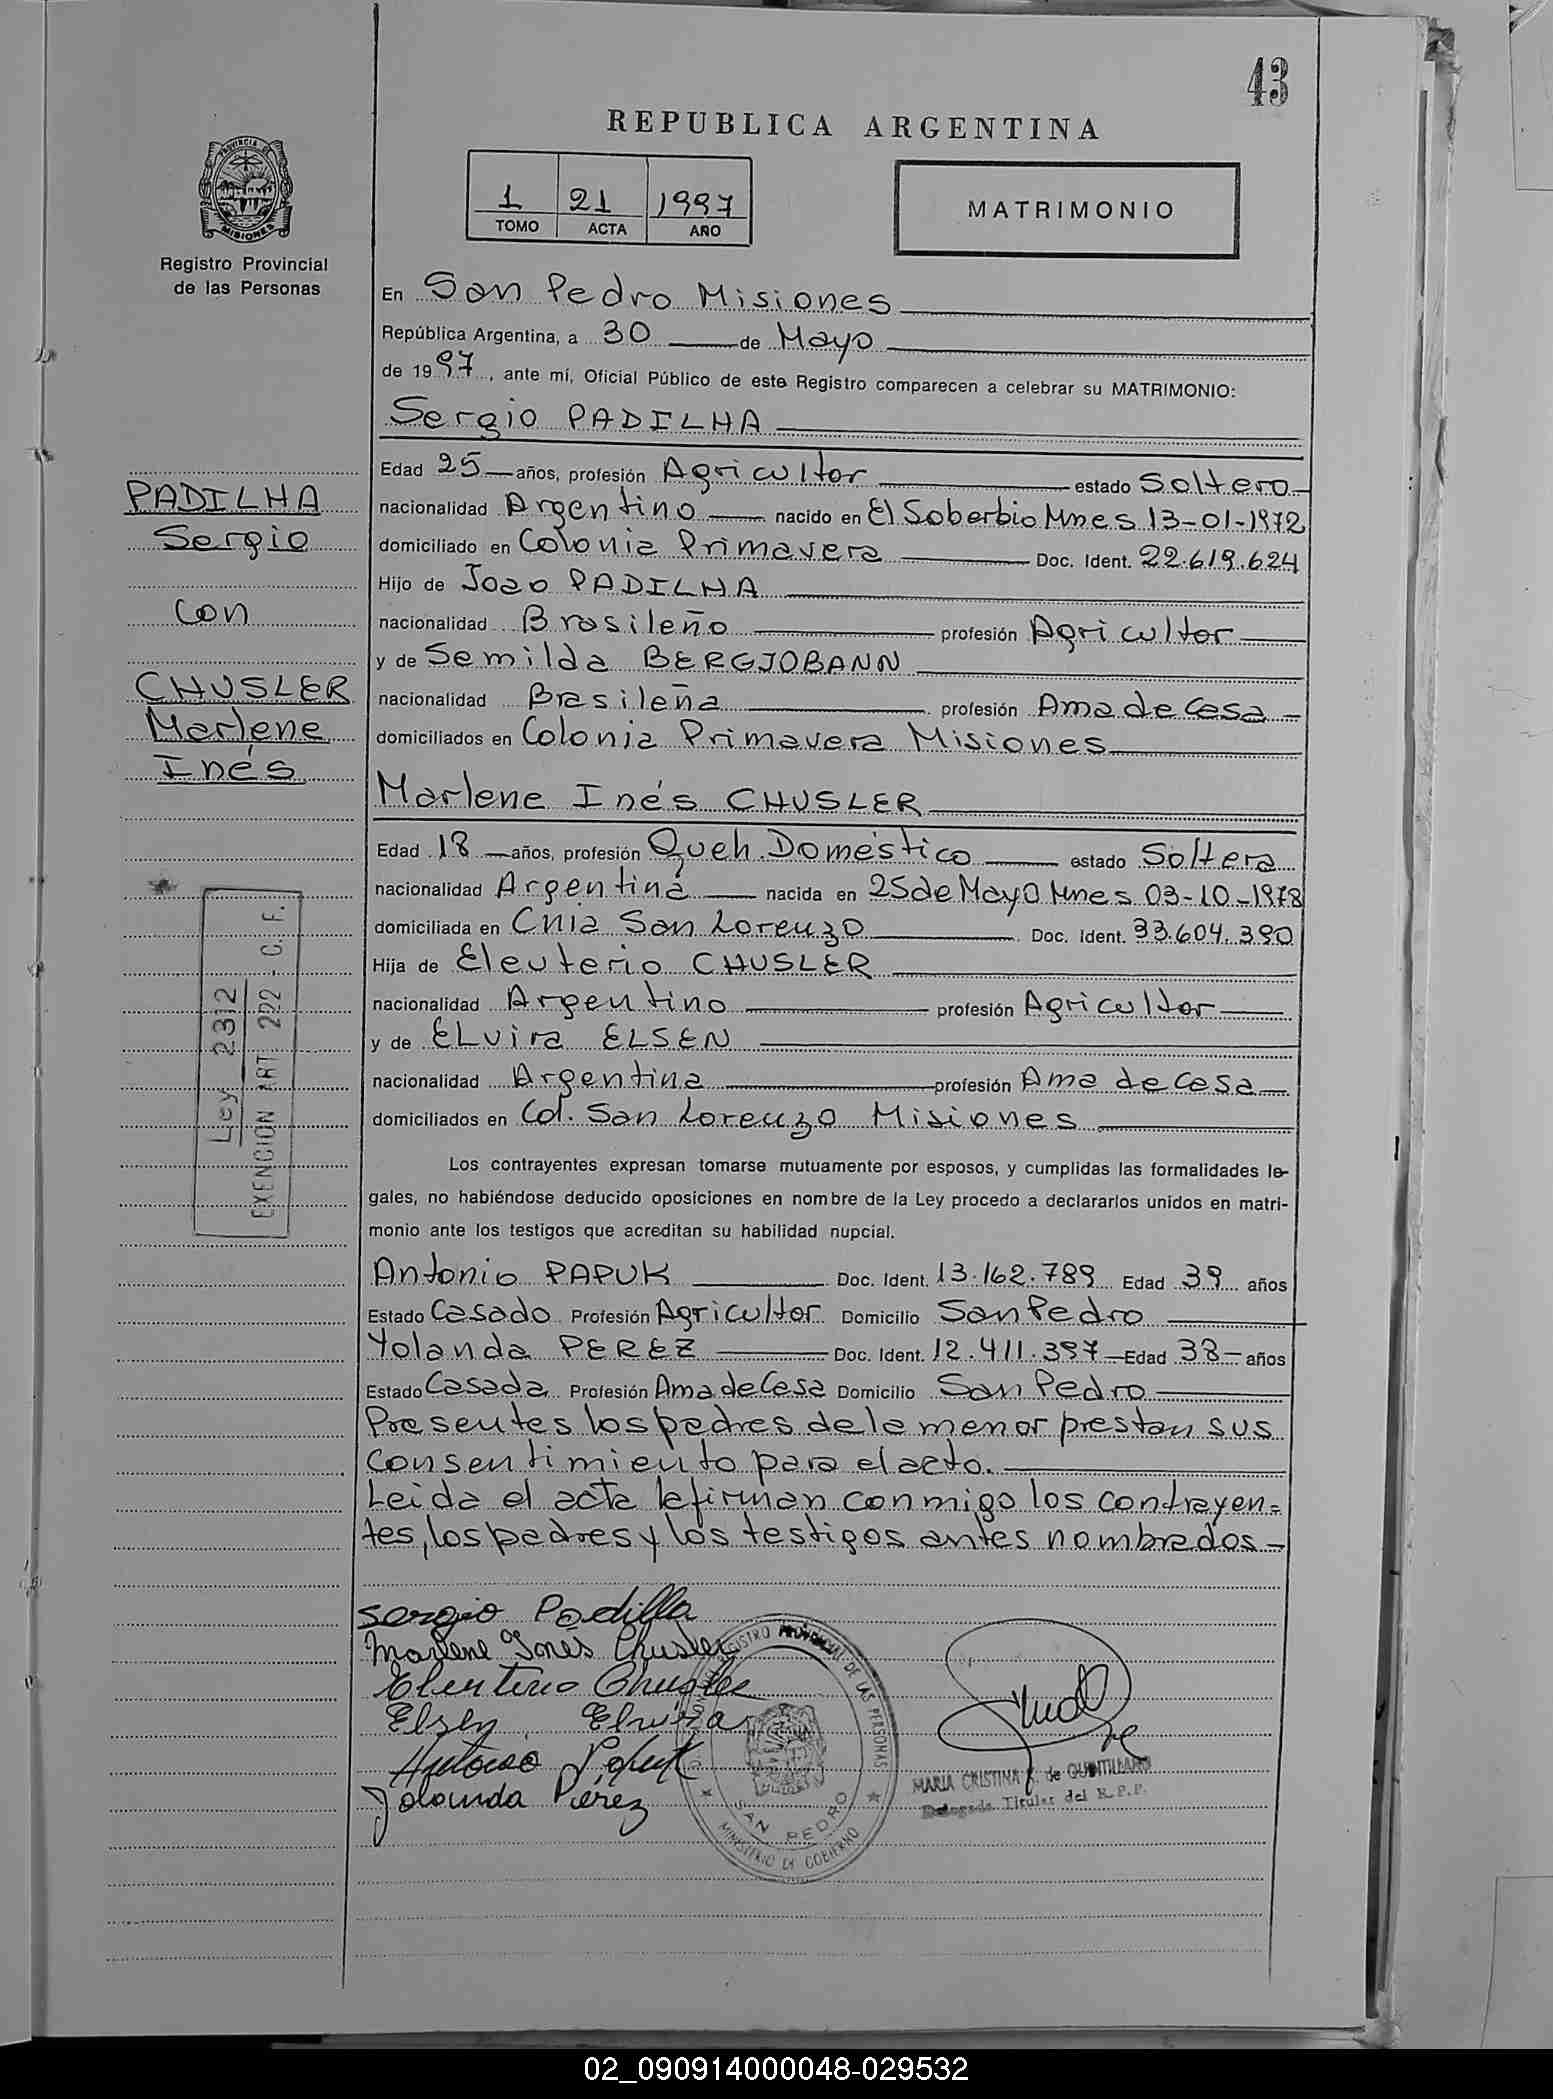 43
REPUBLICA ARGENTINA
1 21 1997
TOMO ACTA AÑO
MATRIMONIO
PROVINCIA DE
MISIONES
Registro Provincial
de las Personas
En San Pedro Misiones
República Argentina, a 30 de Mayo
de 1997, ante mí, Oficial Público de este Registro comparecen a celebrar su MATRIMONIO:
Sergio PADILHA
Edad 25 años, profesión Agricultor estado Soltero
nacionalidad Argentino nacido en El Soberbio Mnes 13-01-1972
domiciliado en Colonia Primavera Doc. Ident. 22.619.624
Hijo de Joao PADILHA
nacionalidad Brasileño profesión Agricultor
y de Semilda BERGJOBANN
nacionalidad Brasileña profesión Ama de Casa
domiciliados en Colonia Primavera Misiones
PADILHA
Sergio
con
CHUSLER
Marlene
Inés
Marlene Inés CHUSLER
Edad 18 años, profesión Queh. Doméstico estado Soltera
nacionalidad Argentina nacida en 25 de Mayo Mnes 03-10-1978
domiciliada en Cnia San Lorenzo Doc. Ident. 33.604.390
Hija de Eleuterio CHUSLER
nacionalidad Argentino profesión Agricultor
y de Elvira ELSEN
nacionalidad Argentina profesión Ama de Casa
domiciliados en Col. San Lorenzo Misiones
Ley 2312
EXENCION ART. 222 - C. F.
Los contrayentes expresan tomarse mutuamente por esposos, y cumplidas las formalidades le-
gales, no habiéndose deducido oposiciones en nombre de la Ley procedo a declararlos unidos en matri-
monio ante los testigos que acreditan su habilidad nupcial.
Antonio PAPUK Doc. Ident. 13.162.789 Edad 39 años
Estado Casado Profesión Agricultor Domicilio San Pedro
Yolanda PEREZ Doc. Ident. 12.411.397 Edad 38 años
Estado Casada Profesión Ama de Casa Domicilio San Pedro
Presentes los padres de la menor prestan sus
consentimiento para el acto.
Leida el acta la firman conmigo los contrayen=
tes, los padres y los testigos antes nombrados-
Sergio Padilla
Marlene Inés Chusler
Eleuterio Chusler
Elsen Elvira
Antonio Papuk
Yolanda Pérez
REGISTRO PROVINCIAL DE LAS PERSONAS
SAN PEDRO
MINISTERIO DE GOBIERNO
MARIA CRISTINA de QUINTILIANO
Delegada Titular del R.P.P.
02_090914000048-029532